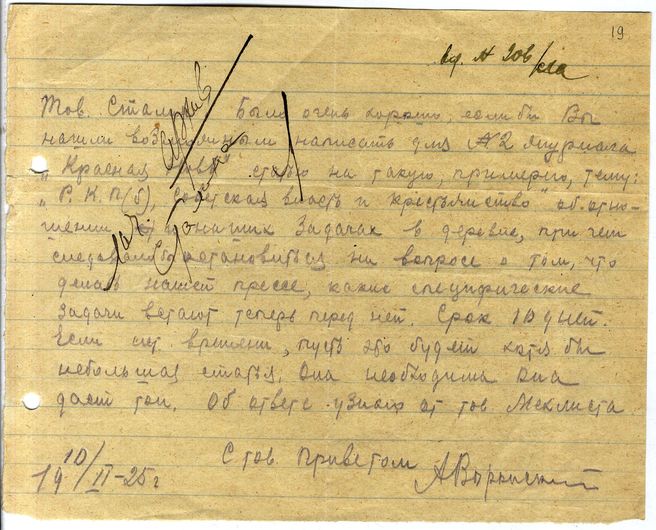 19
вх. № 306/сла
Тов. Сталин Было очень хорошо, если бы Вы
нашли возможным написать для №2 журнала
„Красная Новь" статью на такую, примерно, тему:
„Р.К.П(б), Советская власть и крестьянство" об отно-
шении, о наших задачах в деревне, при чем
следовало бы остановиться на вопросе о том, что
делать нашей прессе, какие специфические
задачи встают теперь перед ней. Срок 10 дней.
Если нет времени, пусть это будет хотя бы
небольшая статья. Она необходима она
даст тон. Об ответе узнаю от тов. Мехлиса
С тов. приветом
АВоронский
19 10/II-25г